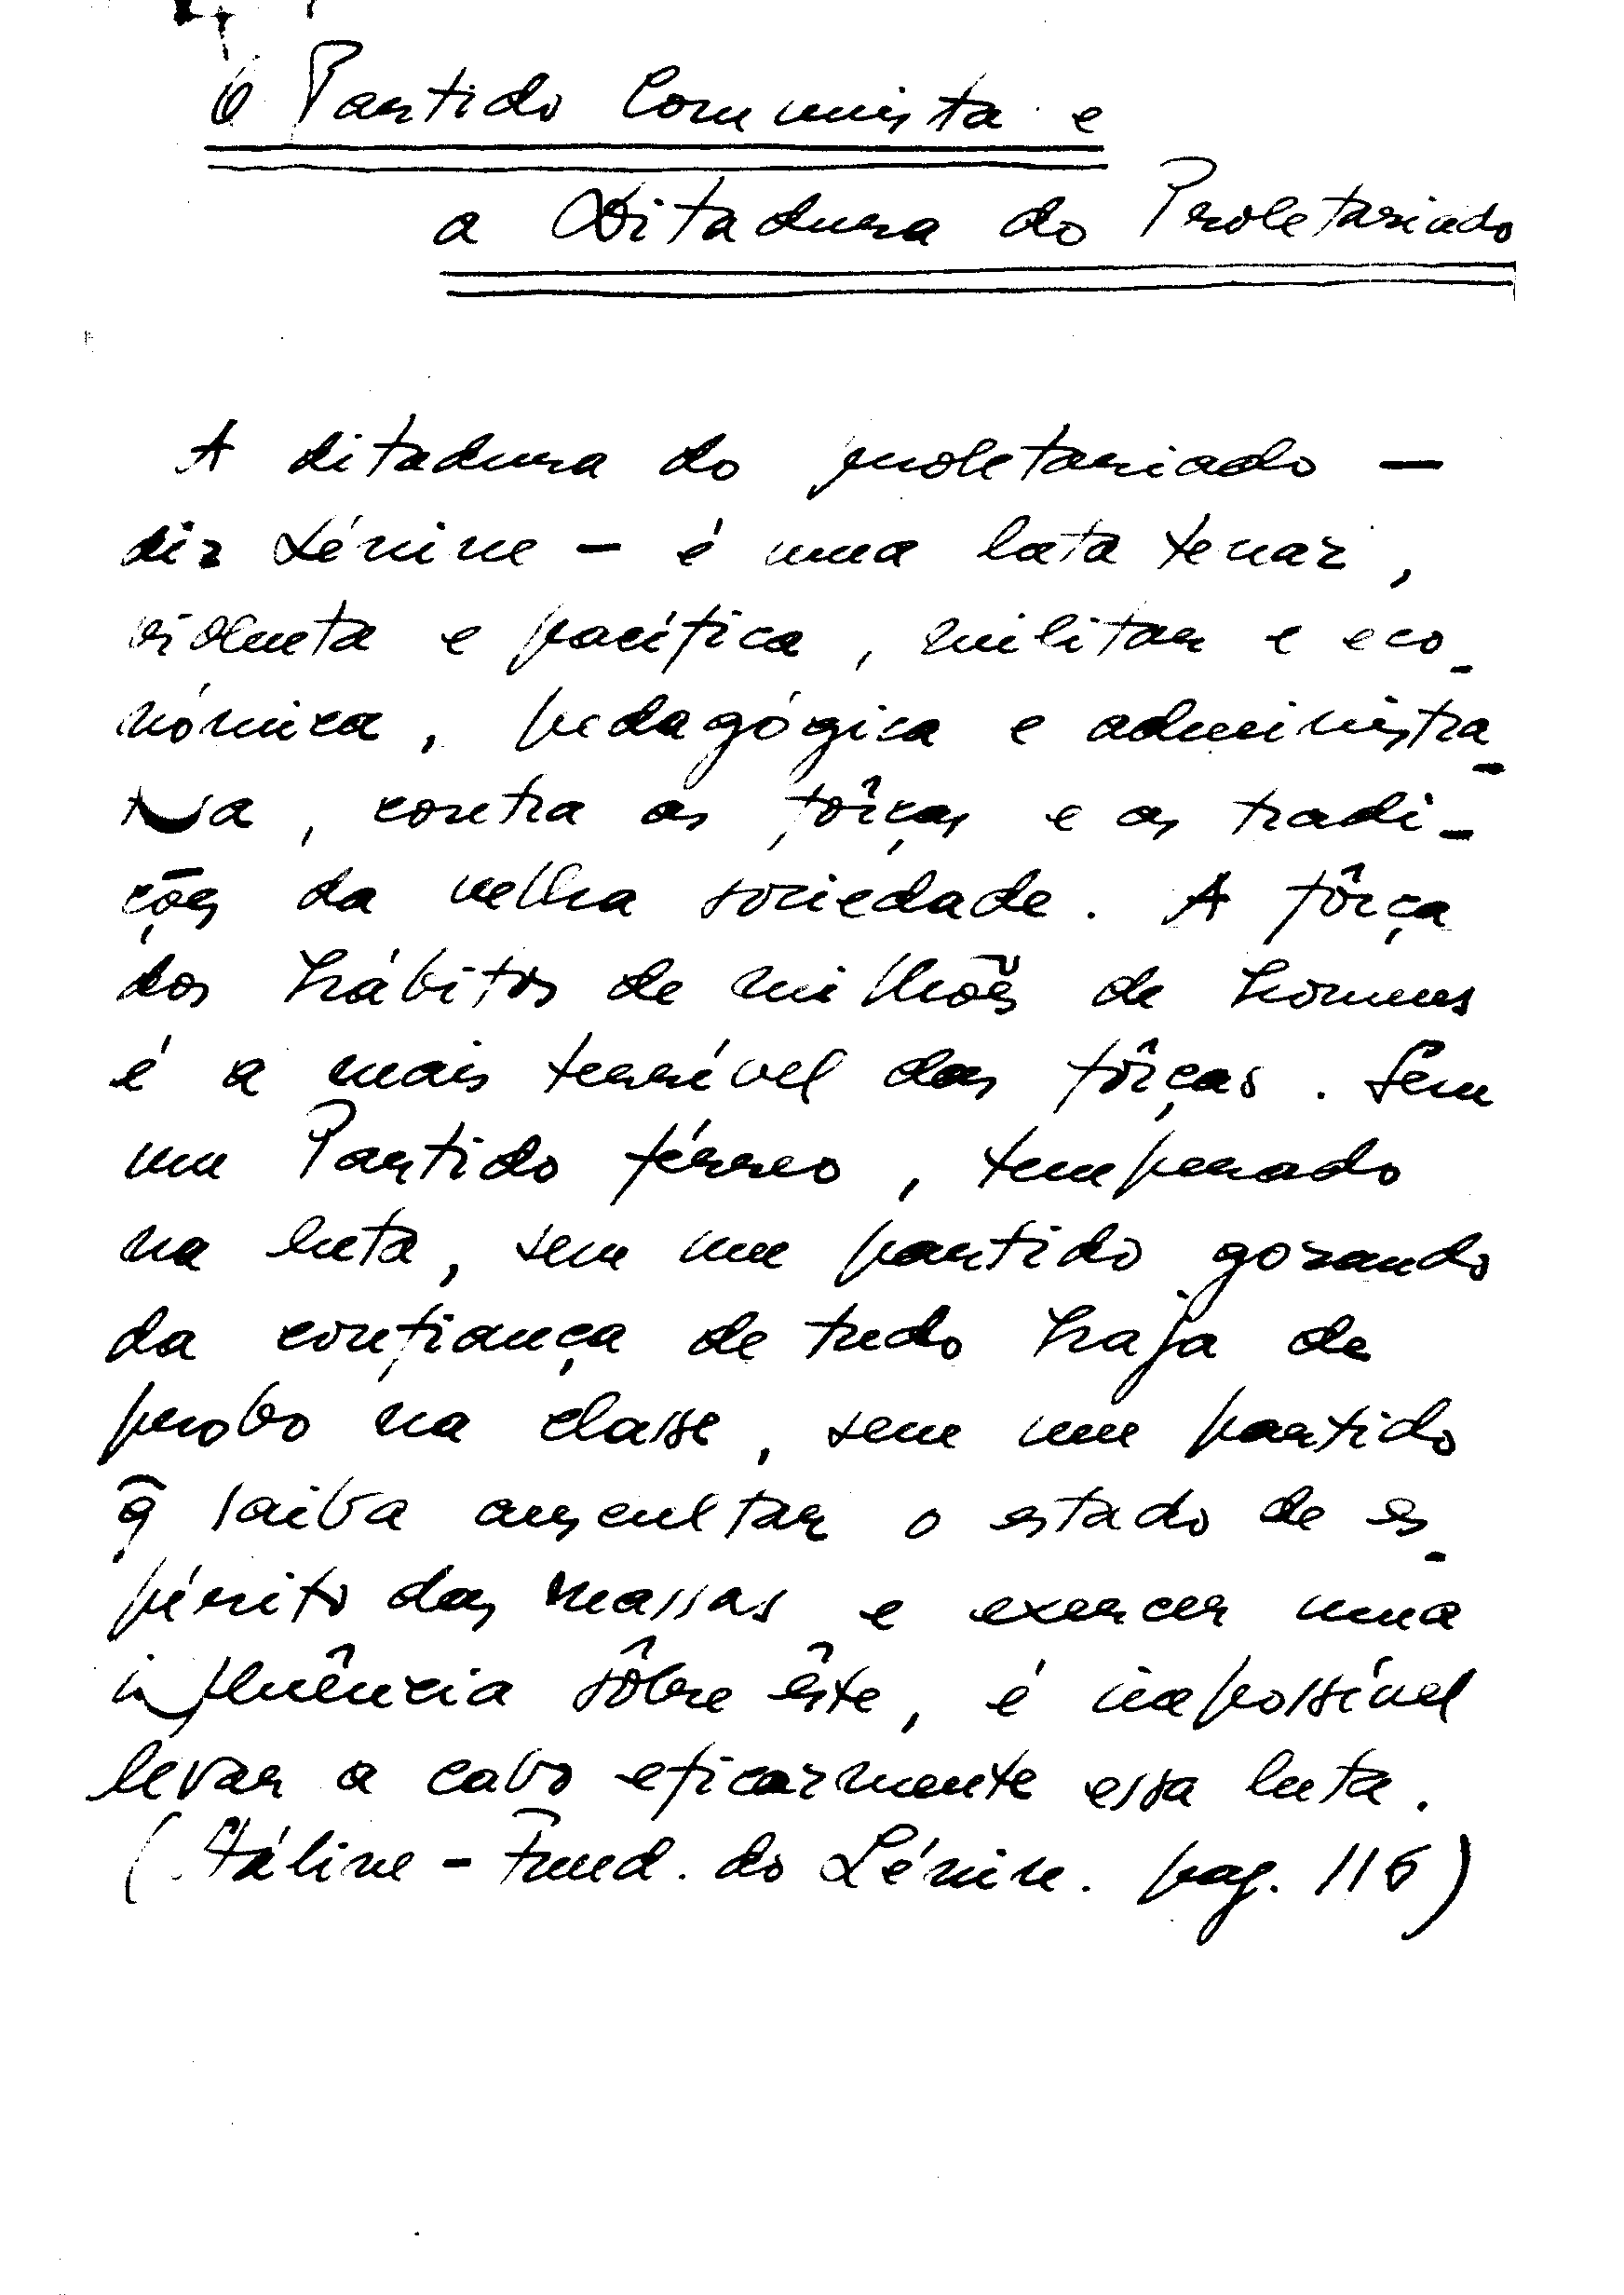 O Partido Comunista e
a Ditadura do Proletariado
A ditadura do proletariado —
diz Lénine — é uma luta tenaz,
violenta e pacífica, militar e eco-
nómica, pedagógica e administra-
tiva, contra as fôrças e as tradi-
ções da velha sociedade. A fôrça
dos hábitos de milhões de homens
é a mais terrível das fôrças. Sem
um Partido férreo, temperado
na luta, sem um partido gozando
da confiança de tudo haja de
probo na classe, sem um partido
q̃ saiba auscultar o estado de es-
pírito das massas e exercer uma
influência sôbre êste, é impossível
levar a cabo eficazmente essa luta.
(Stáline - Fund. do Lénin. pag. 116)